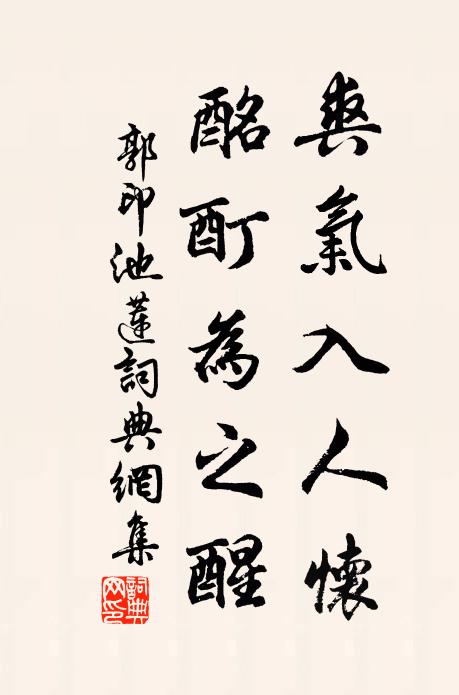 爽氣入人懷
酩酊為之醒
郭印池蓮詞典網集
詞典网印